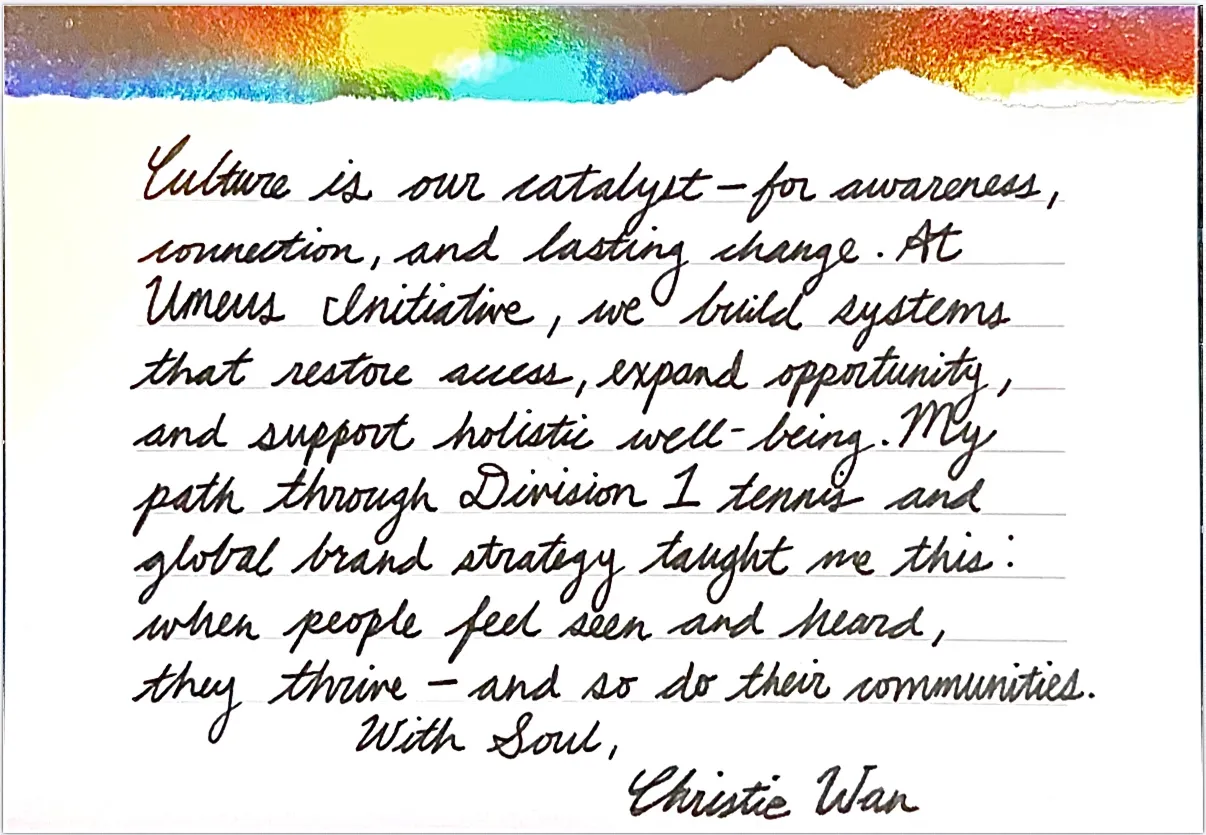 Culture is our catalyst – for awareness,
connection, and lasting change. At
Umeus Initiative, we build systems
that restore access, expand opportunity,
and support holistic well-being. My
path through Division 1 tennis and
global brand strategy taught me this:
when people feel seen and heard,
they thrive – and so do their communities.
With Soul,
Christie Wan